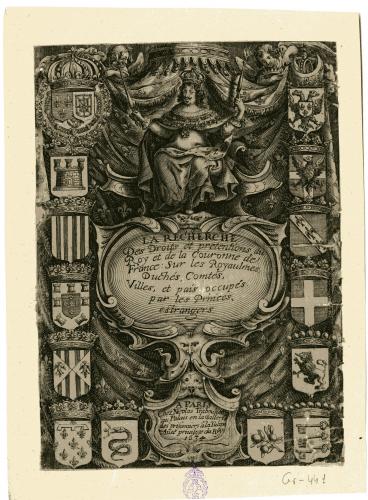 LA RECHERCHE
Des Droits et prétentions du
Roy et de la Couronne de
France: Sur les Royaulmes,
Duchés, Comtés,
Villes, et païs occupés
par les Princes
estrangers
A PARIS
chez Nicolas
au Palais en la Gallerie
des prisonniers à la
Avec privilege du Roy
Gr-441